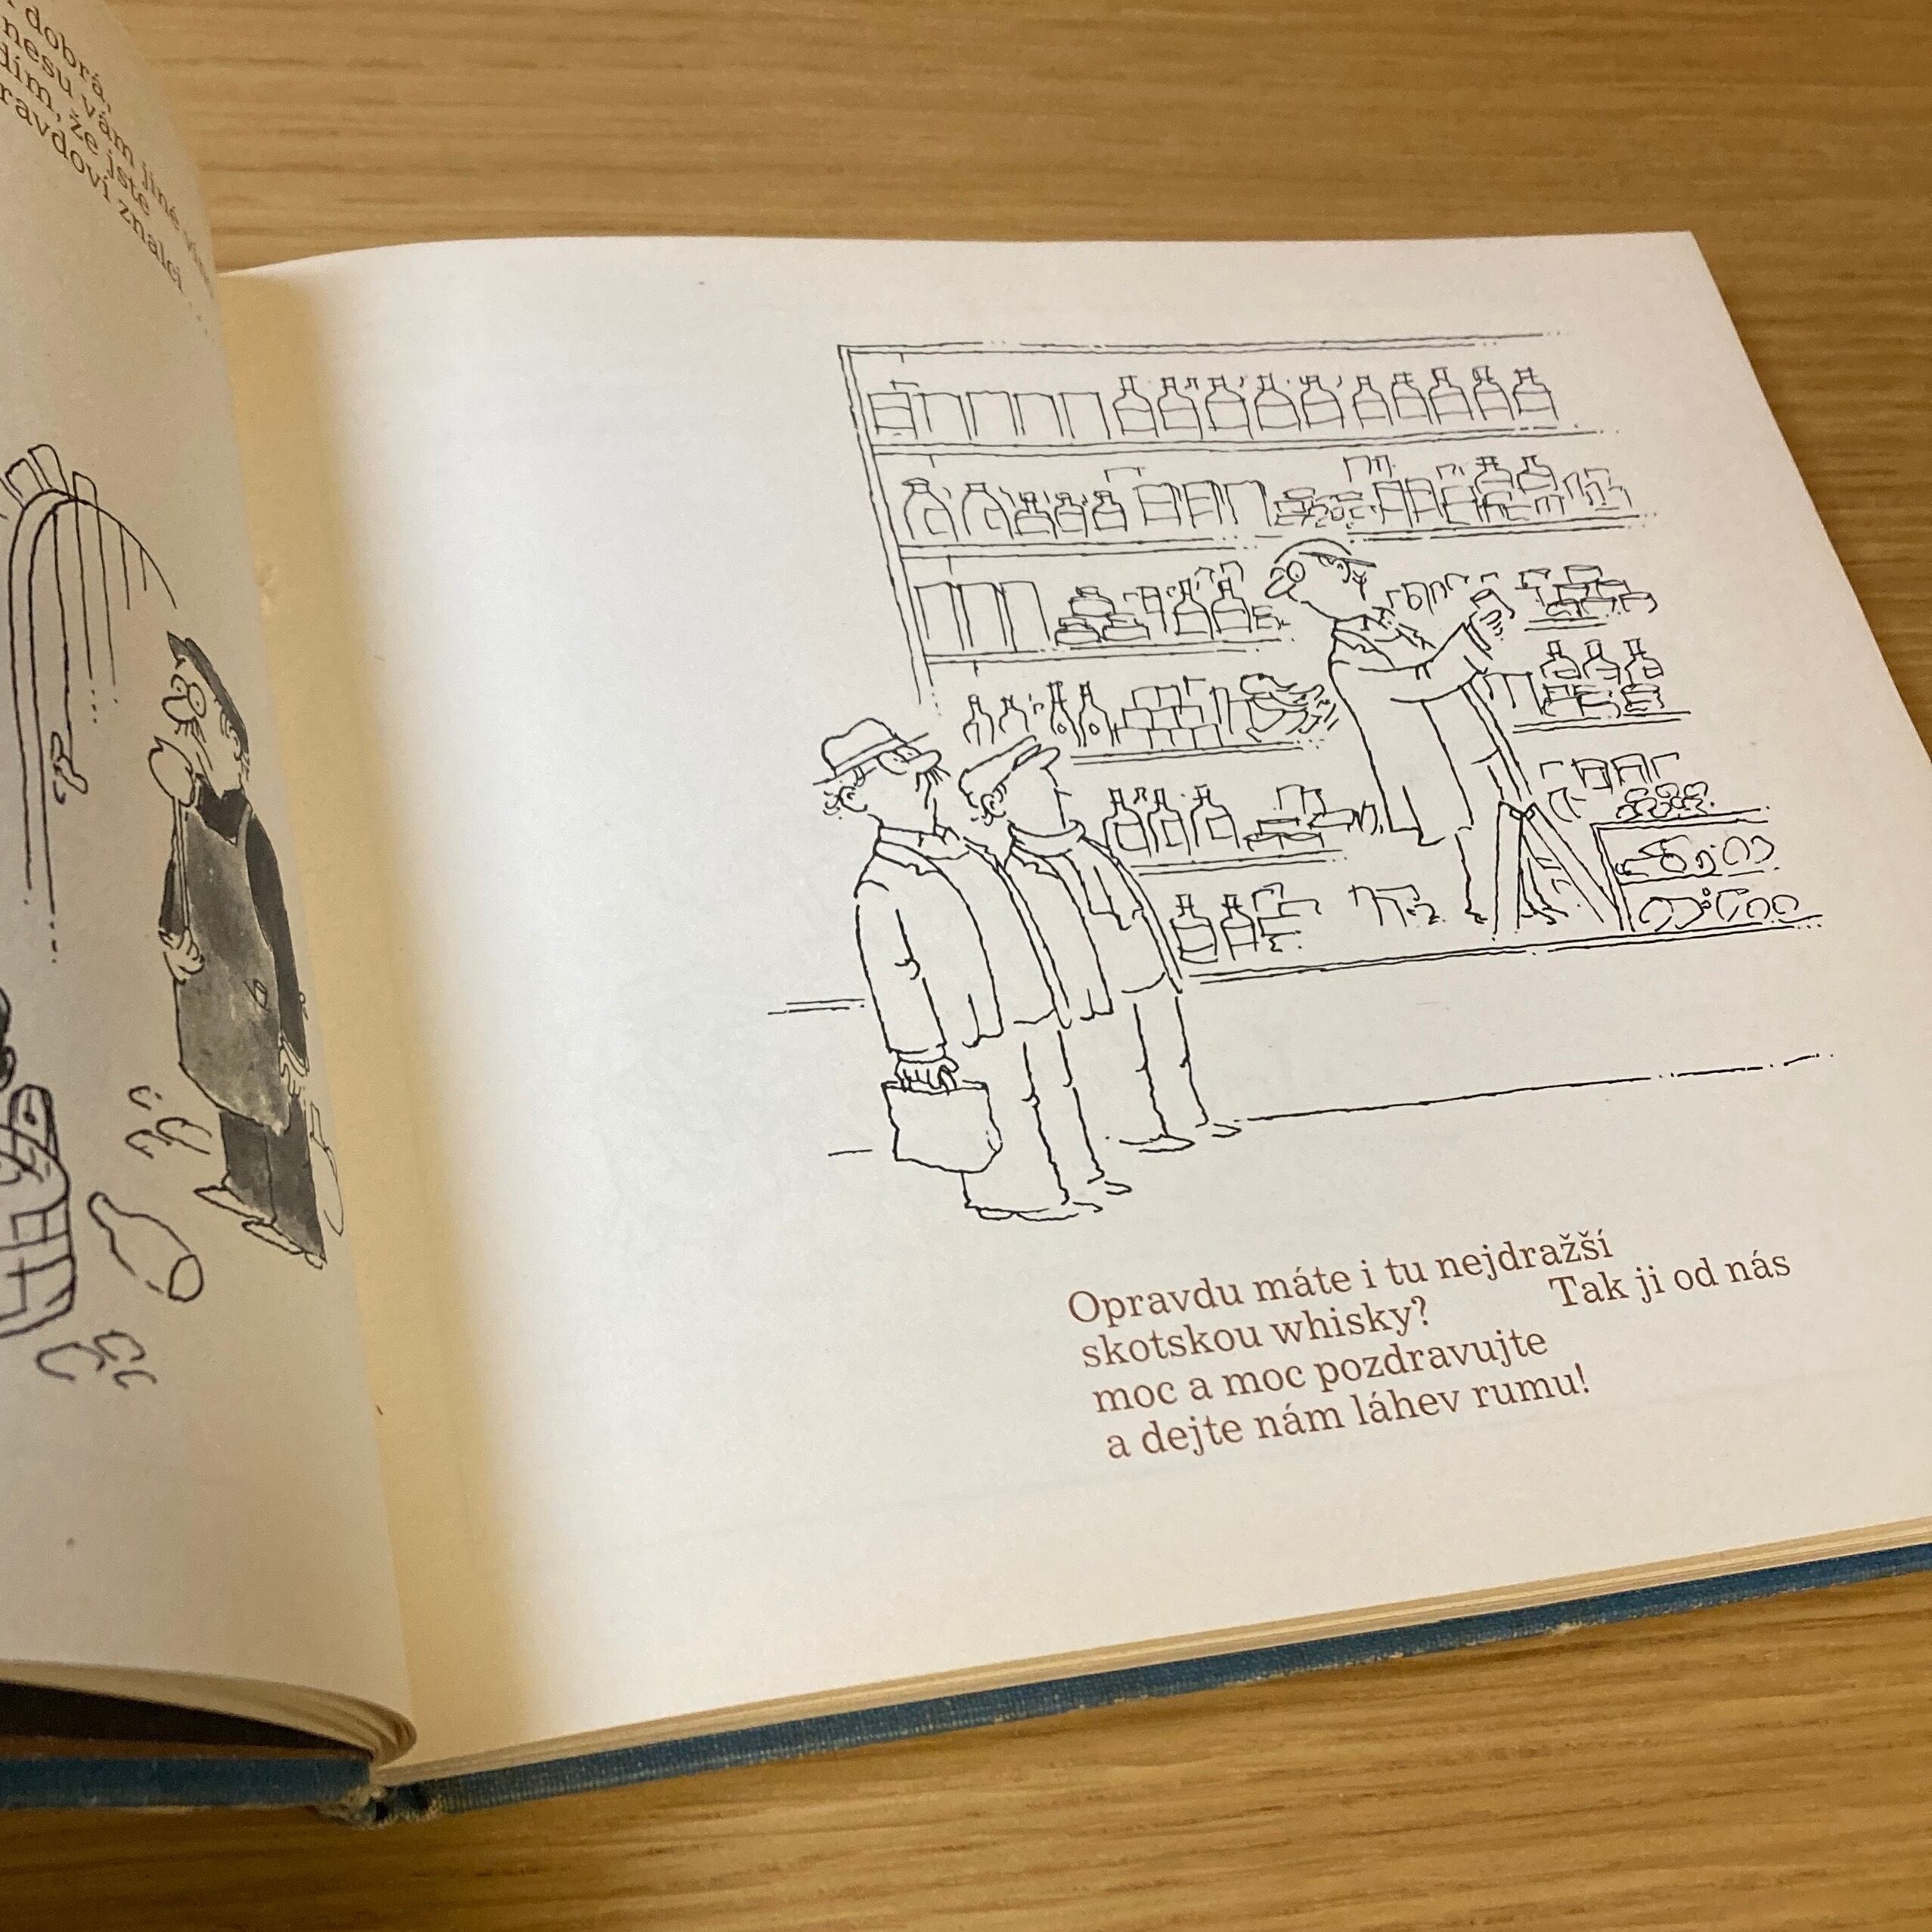 dobrá,
nesu vám jiné
že jste
znalci . . .
Opravdu máte i tu nejdražší
skotskou whisky? Tak ji od nás
moc a moc pozdravujte
a dejte nám láhev rumu!